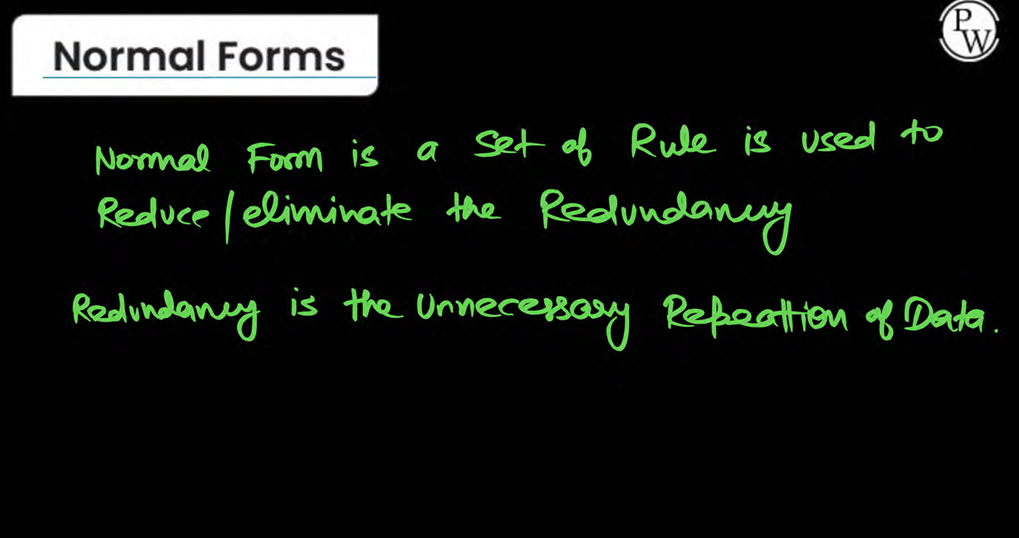 Normal Forms
PW
Normal Form is a Set of Rule is used to
Reduce/eliminate the Redundancy
Redundancy is the Unnecessary Repeattion of Data.